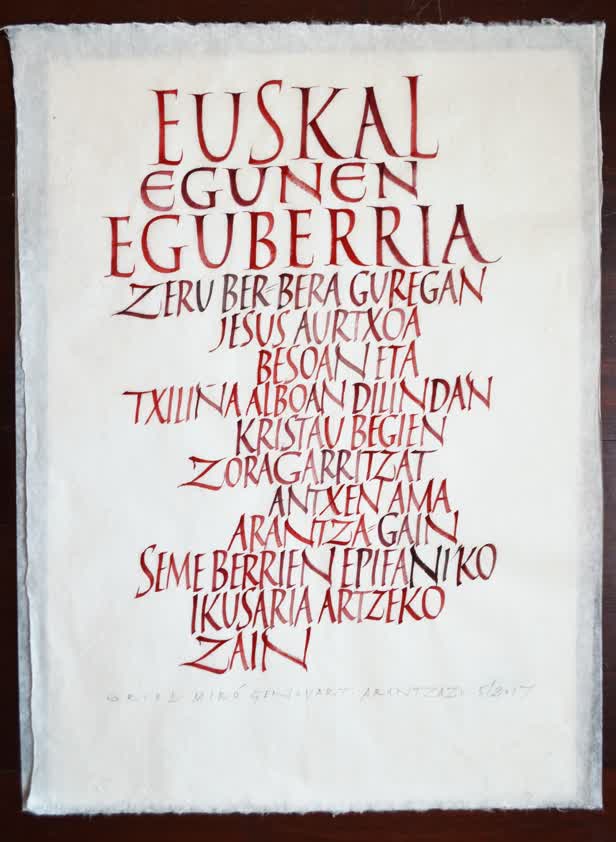 EUSKAL
EGUNEN
EGUBERRIA
ZERU BER=BERA GUREGAN
JESUS AURTXOA
BESOAN ETA
TXILIÑA ALBOAN DILINDAN
KRISTAU BEGIEN
ZORAGARRITZAT
ANTXEN AMA
ARANTZA=GAIN
SEME BERRIEN EPIFANIKO
IKUSARIA ARTZEKO
ZAIN
ORIOL MIRÓ GENOVART. ARANTZAZU 5/2017